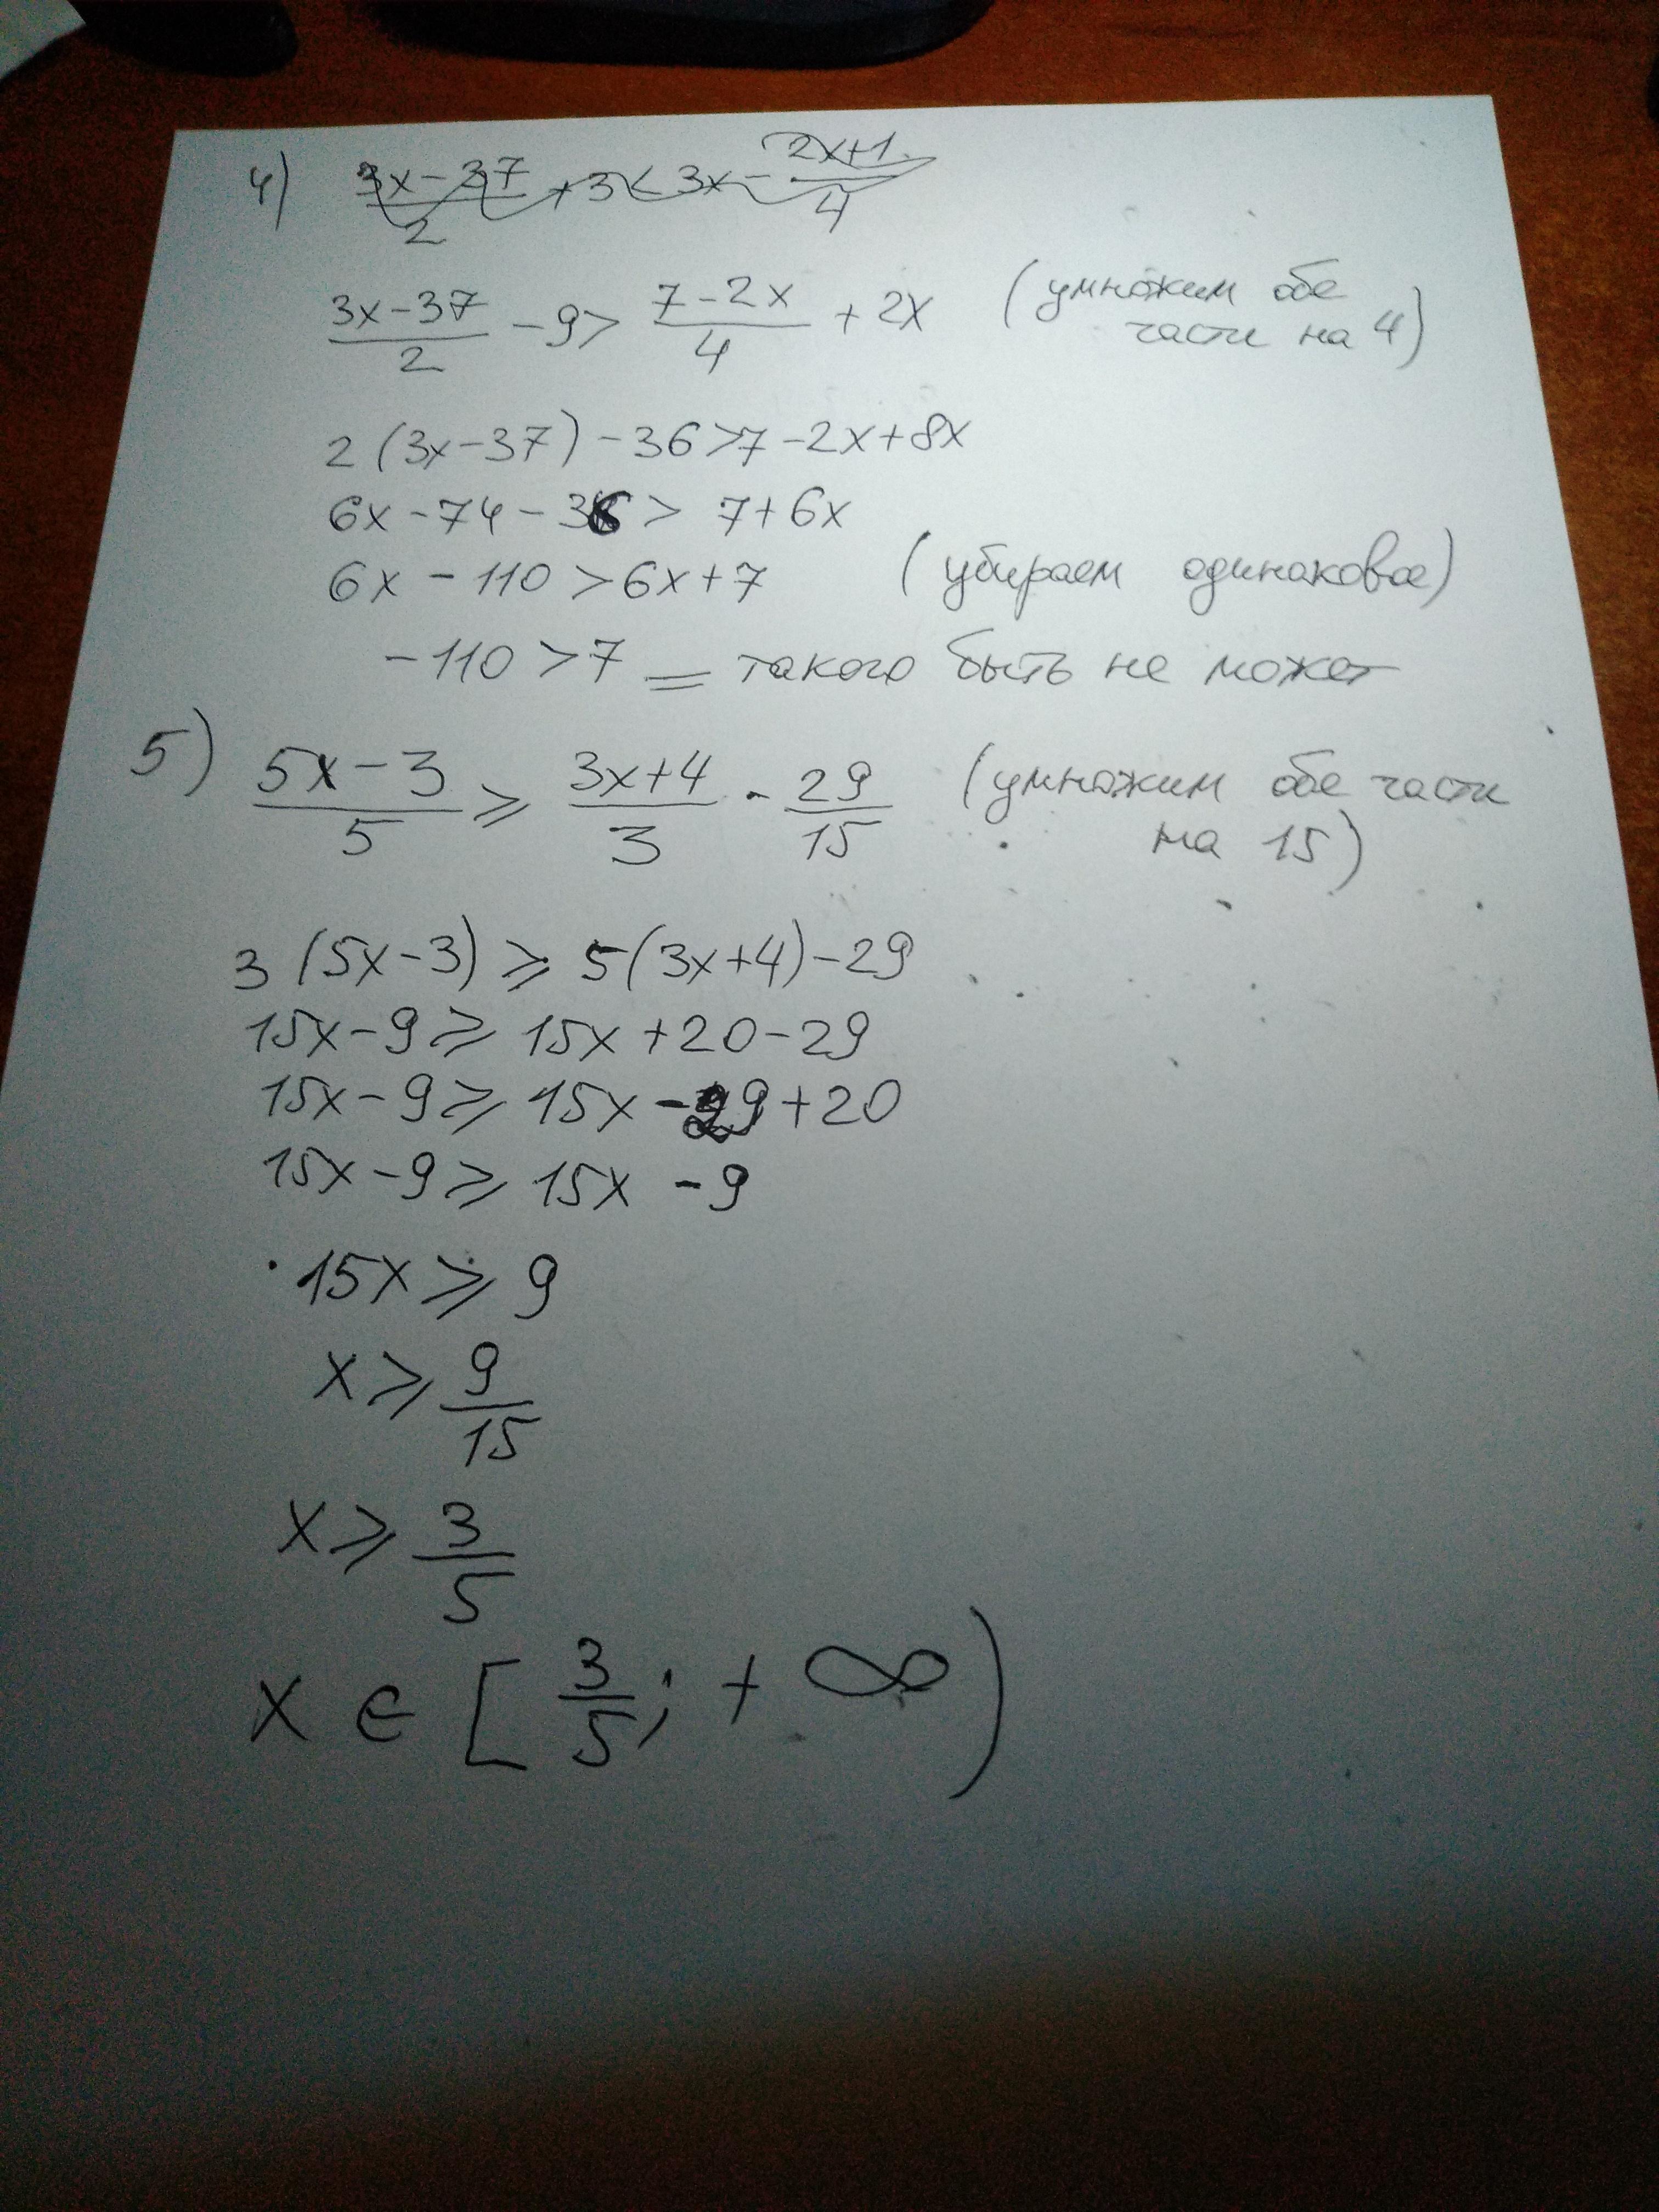 4) 3x-37/2 +3< 3x- 2x+1/4
3x-37/2 -9> 7-2x/4 + 2x (умножим обе
части на 4)
2(3x-37)-36>7-2x+8x
6x-74-36> 7+6x
6x-110>6x+7 (убираем одинаковое)
-110>7 = такого быть не может
5) 5x-3/5 ⩾ 3x+4/3 - 29/15 (умножим обе части
на 15)
3(5x-3)⩾ 5(3x+4)-29
15x-9⩾ 15x+20-29
15x-9⩾ 15x-29+20
15x-9⩾ 15x -9
15x⩾ 9
x⩾ 9/15
x⩾ 3/5
x ∈ [3/5; +∞)